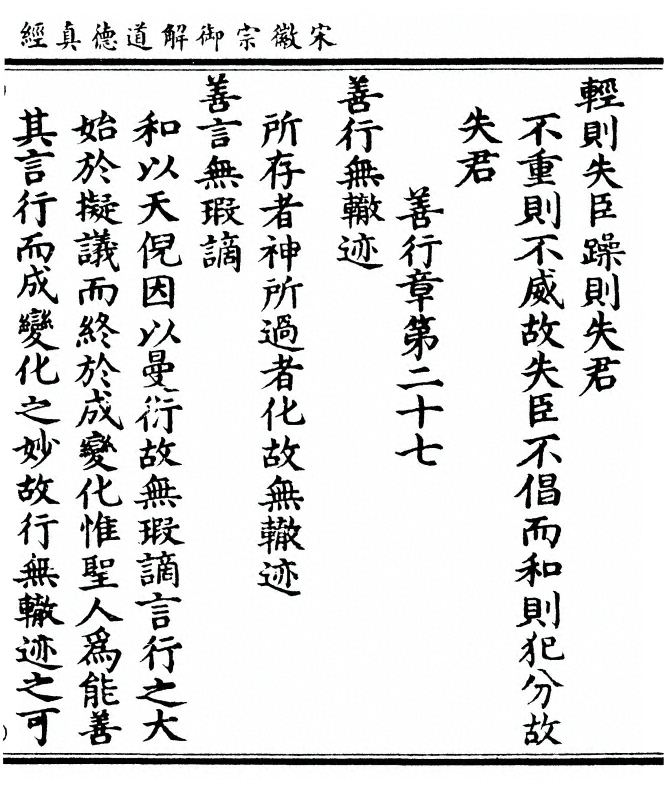 宋徽宗御解道德真經
輕則失臣躁則失君
不重則不威故失臣不倡而和則犯分故
失君
善行章第二十七
善行無轍迹
所存者神所過者化故無轍迹
善言無瑕讁
和以天倪因以曼衍故無瑕謫言行之大
始於擬議而終於成變化惟聖人爲能善
其言行而成變化之妙故行無轍迹之可